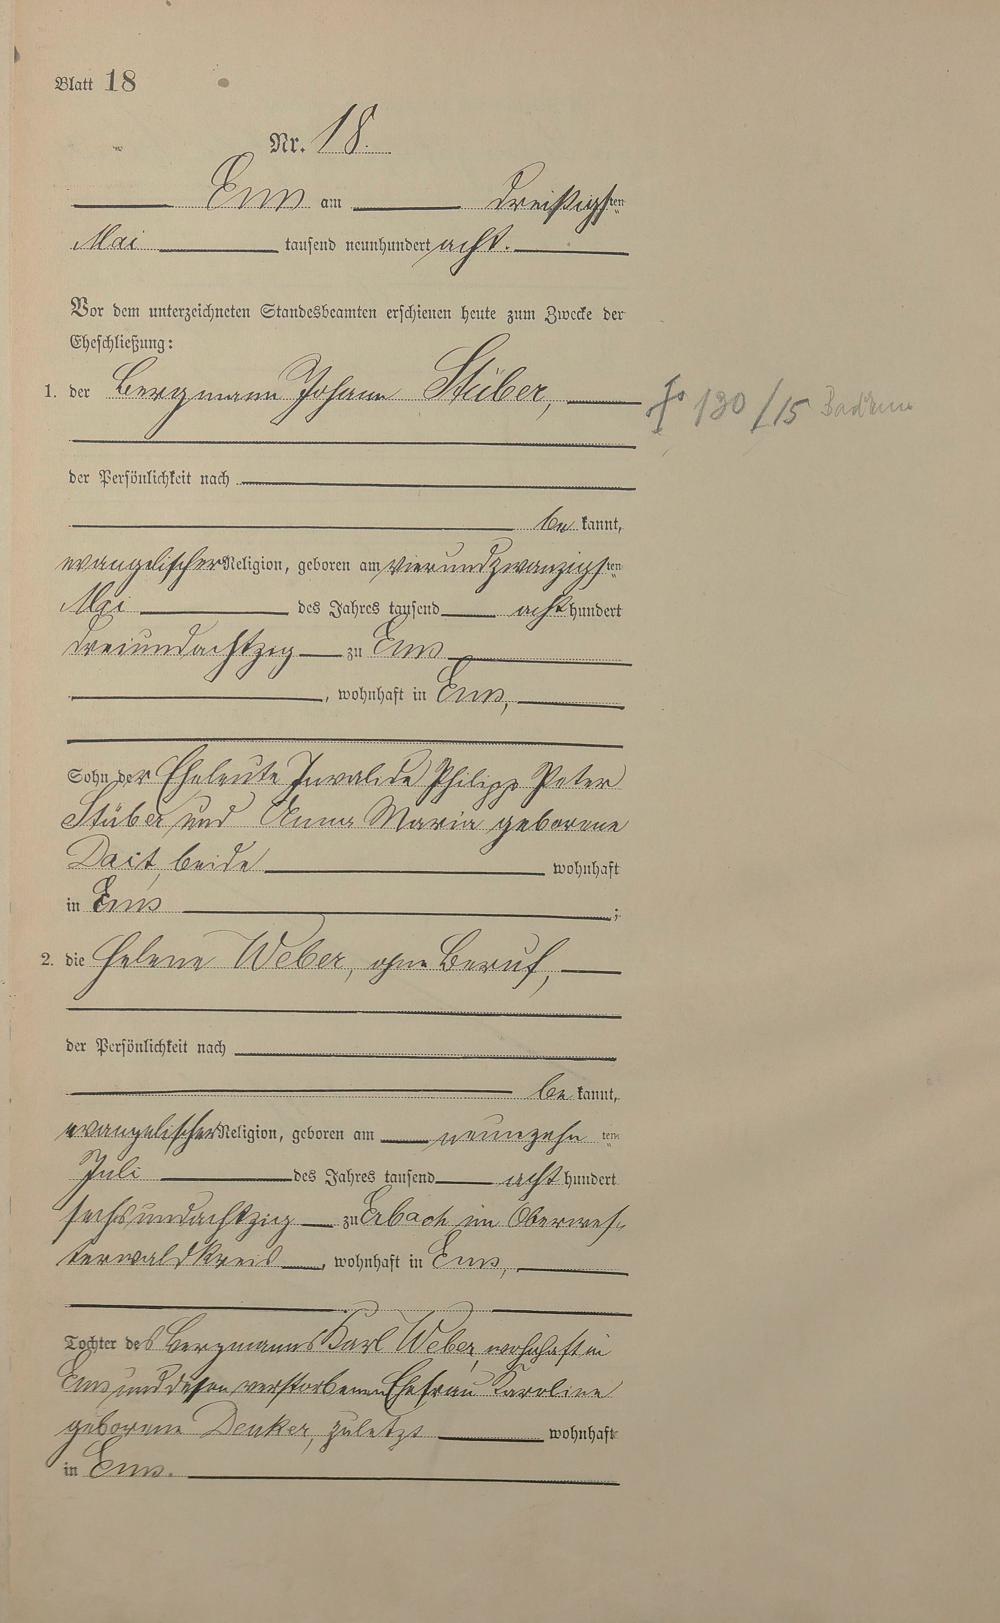 Blatt 18
Nr. 18.
Ems am dreißigsten
Mai tausend neunhundert acht.
Vor dem unterzeichneten Standesbeamten erschienen heute zum Zwecke der
Eheschließung:
1. der Bergmann Johann Stüber,
der Persönlichkeit nach
be kannt,
evangelischer Religion, geboren am vierundzwanzigsten
Mai des Jahres tausend acht hundert
dreiundachtzig zu Ems
, wohnhaft in Ems,
Sohn der Eheleute Invalide Philipp Peter
Stüber und Anna Maria geborene
beide wohnhaft
in Ems ;
2. die Helene Weber, ohne Beruf,
der Persönlichkeit nach
be kannt,
evangelischer Religion, geboren am neunzehn ten
Juli des Jahres tausend acht hundert
sechsundachtzig zu Erbach im Oberwes-
terwaldkreis, wohnhaft in Ems,
Tochter des Bergmanns Karl Weber, wohnhaft in
Ems und dessen verstorbenen Ehefrau Karoline
geborene Denker, zuletzt wohnhaft
in Ems.
130/15